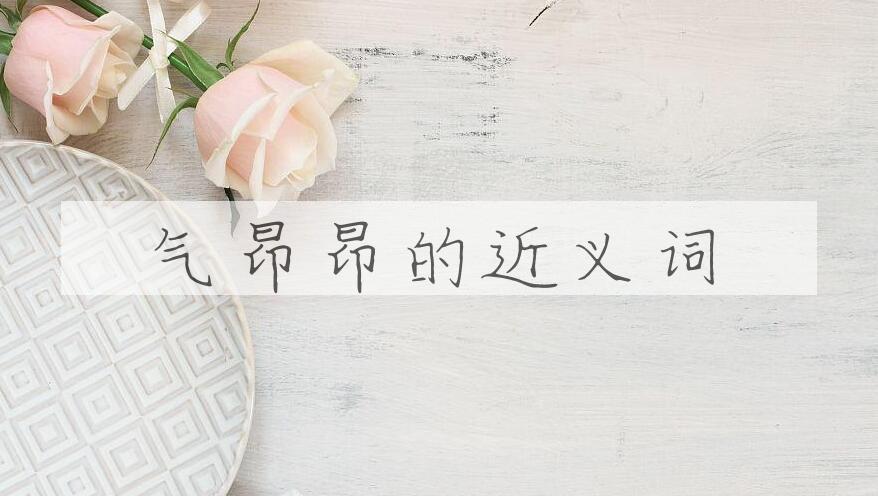 气昂昂的近义词